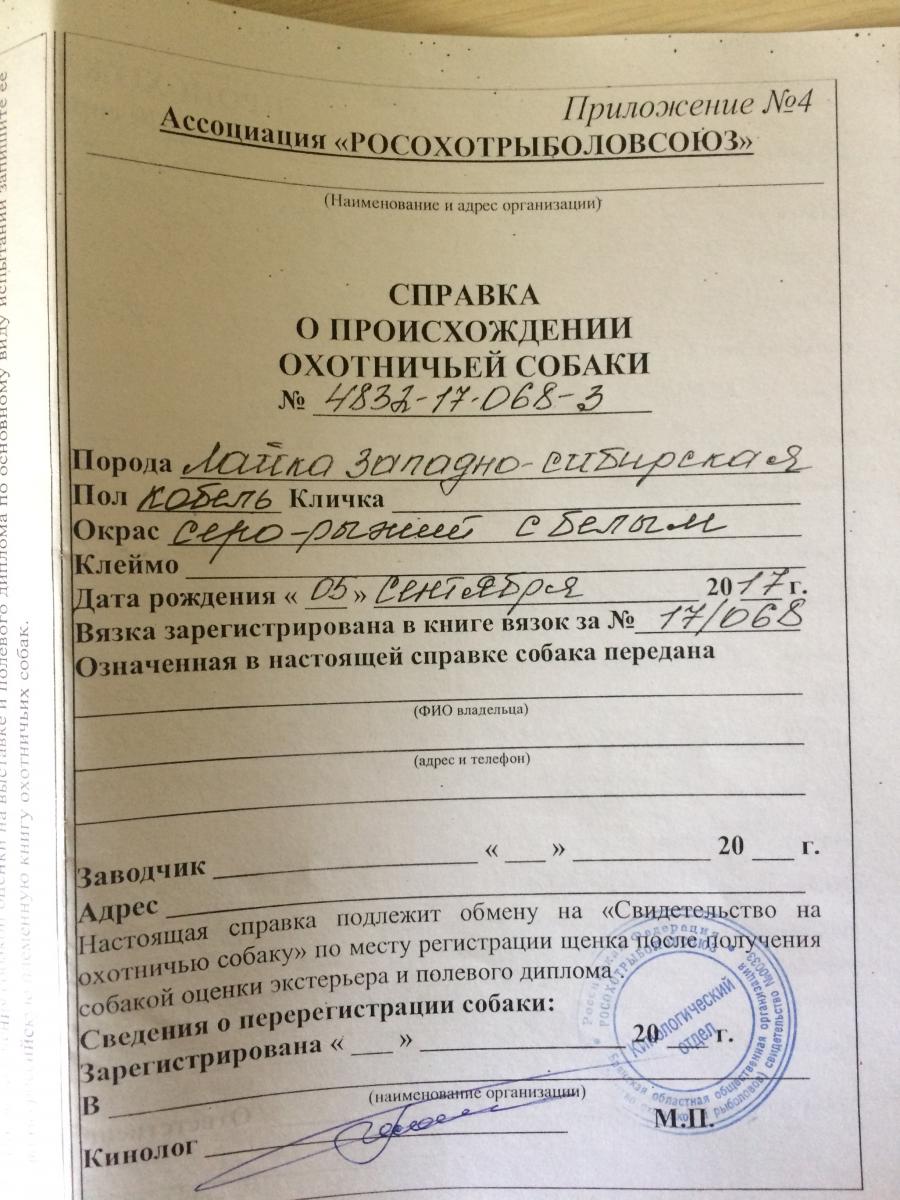 Приложение №4
Ассоциация «РОСОХОТРЫБОЛОВСОЮЗ»
(Наименование и адрес организации)
СПРАВКА
О ПРОИСХОЖДЕНИИ
ОХОТНИЧЬЕЙ СОБАКИ
№ 4832-17-068-3
Порода Лайка Западно-сибирская
Пол кобель Кличка
Окрас серо-рыжий с белым
Клеймо
Дата рождения « 05 » Сентября 2017 г.
Вязка зарегистрирована в книге вязок за № 17/068
Означенная в настоящей справке собака передана
(ФИО владельца)
(адрес и телефон)
Заводчик « » 20 г.
Адрес
Настоящая справка подлежит обмену на «Свидетельство на
охотничью собаку» по месту регистрации щенка после получения
собакой оценки экстерьера и полевого диплома.
Сведения о перерегистрации собаки:
Зарегистрирована « » 20 г.
В
(наименование организации)
М.П.
Кинолог
Кинологический
отдел
Российская Федерация
РОСОХОТРЫБОЛОВСОЮЗ
областная общественная организация
свидетельство №0033
оценки на выставке и полевого диплома по основному виду испытаний запишите ее
племенную книгу охотничьих собак.